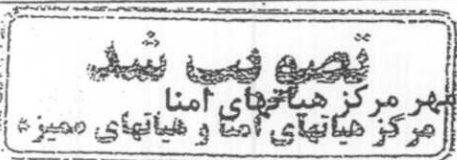 تصویب شد
مهر مرکز هیأتهای امنا
مرکز هیاتهای امنا و هیاتهای ممیزه